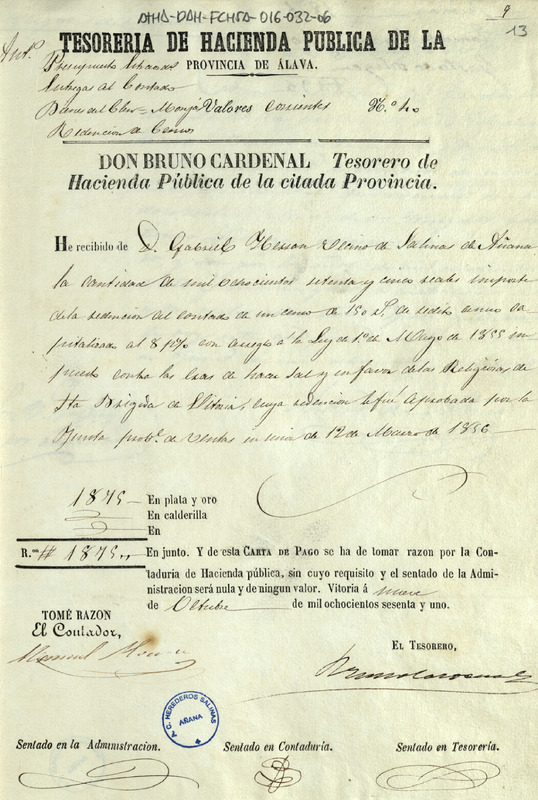 AHHA-DAH-FCHSA-016-032-06
9
13
TESORERIA DE HACIENDA PUBLICA DE LA
PROVINCIA DE ÁLAVA.
Presupuesto
Entregas al Contado
Bienes del Clero - Monjas Valores corrientes N.º 40
Redencion de Censos
DON BRUNO CARDENAL Tesorero de
Hacienda Pública de la citada Provincia.
He recibido de D. Gabriel Vecino de Salinas de Añana
la cantidad de mil ochocientos setenta y cinco reales importe
de la redencion al contado de un censo de 150 r.s de redito anuo ca
pitalizado al 8 p% con arreglo á la Ley de 1.º de Mayo de 1855 im
puesto contra las Eras de hacer sal y en favor de las Religiosas de
Sta Brigida de Vitoria, cuya redencion le fue aprobada por la
Junta prob.l de Ventas en de 12 de Marzo de 1856
1875 En plata y oro
En calderilla
En
R.on # 1875 En junto. Y de esta CARTA DE PAGO se ha de tomar razon por la Con-
taduria de Hacienda pública, sin cuyo requisito y el sentado de la Admi-
nistracion será nula y de ningun valor. Vitoria á nueve
de Octubre de mil ochocientos sesenta y uno.
TOMÉ RAZON
El Contador,
Manuel
EL TESORERO,
Bruno Cardenal
C. HEREDEROS SALINAS
AÑANA
Sentado en la Administracion. Sentado en Contaduría. Sentado en Tesorería.